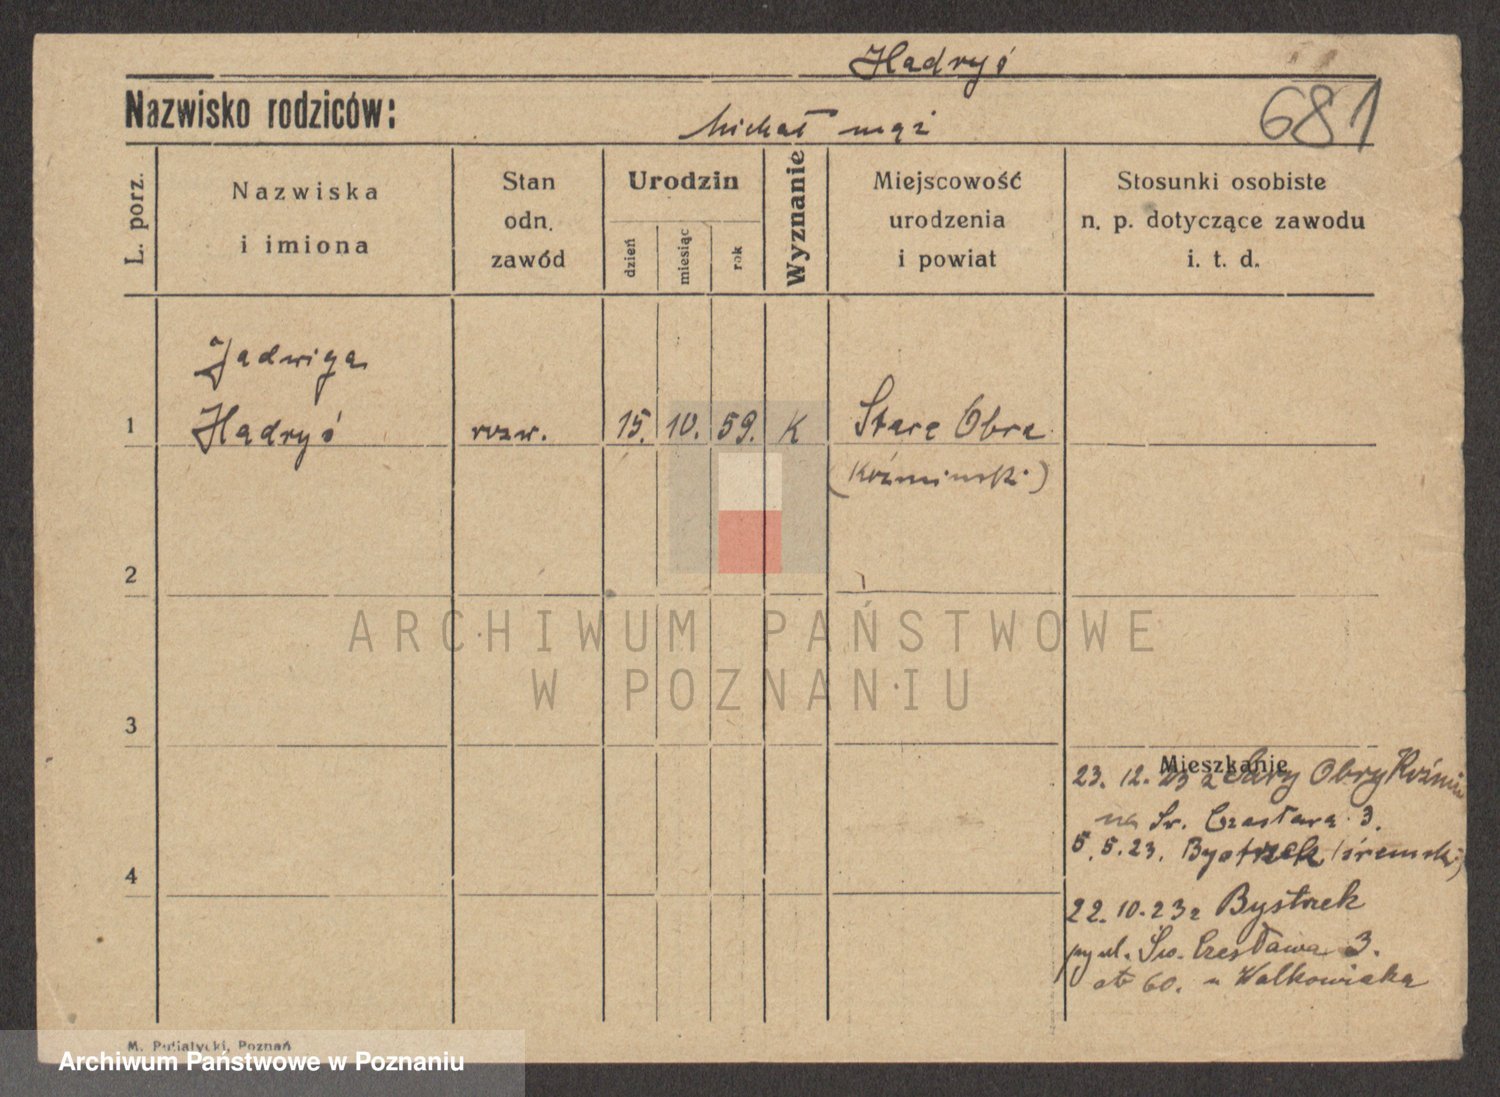 Hądryś
681
Nazwisko rodziców:
Michał mąż
L. porz.
Nazwiska
i imiona
Stan
odn.
zawód
Urodzin
dzień
miesiąc
rok
Wyznanie
Miejscowość
urodzenia
i powiat
Stosunki osobiste
n. p. dotyczące zawodu
i. t. d.
Jadwiga
1
Hądryś
rozw.
15. 10. 59. K
Stara Obra
(Koźminski)
2
ARCHIWUM PAŃSTWOWE
W POZNANIU
3
Mieszkanie
23. 12. z Obry
na Św. Czesława 3.
5. 5. 23. Bystrzek (śremski)
4
22. 10. 23 z Bystrzek
ul. Św. Czesława 3.
60. u Walkowiaka
M. Putiatycki, Poznań
Archiwum Państwowe w Poznaniu